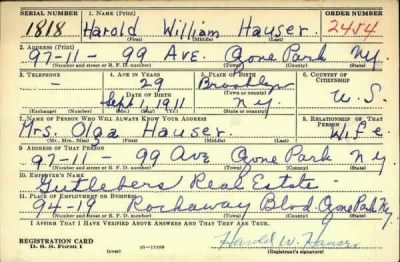 SERIAL NUMBER 1. NAME (Print) ORDER NUMBER
1818 Harold William Hauser 2454
(First) (Middle) (Last)
2. ADDRESS (Print)
97-11- 99 Ave. Ozone Park Ny.
(Number and street or R. F. D. number) (Town) (County) (State)
3. TELEPHONE 4. AGE IN YEARS 5. PLACE OF BIRTH 6. COUNTRY OF CITIZENSHIP
- 29 Brooklyn
DATE OF BIRTH (Town or county)
Sept 1, 1911 Ny. U.S.
(Exchange) (Number) (Mo.) (Day) (Yr.) (State or country)
7. NAME OF PERSON WHO WILL ALWAYS KNOW YOUR ADDRESS 8. RELATIONSHIP OF THAT PERSON
Mrs. Olga Hauser. Wife.
(Mr., Mrs., Miss) (First) (Middle) (Last)
9. ADDRESS OF THAT PERSON
97-11- 99 Ave Ozone Park Ny
(Number and street or R. F. D. number) (Town) (County) (State)
10. EMPLOYER'S NAME
Gutlebers Real Estate
11. PLACE OF EMPLOYMENT OR BUSINESS
94-19 Rockaway Blvd. Ozone Park Ny.
(Number and street or R. F. D. number) (Town) (County) (State)
I AFFIRM THAT I HAVE VERIFIED ABOVE ANSWERS AND THAT THEY ARE TRUE.
REGISTRATION CARD
D. S. S. Form 1 (over) Harold W. Hauser
(Registrant's signature)